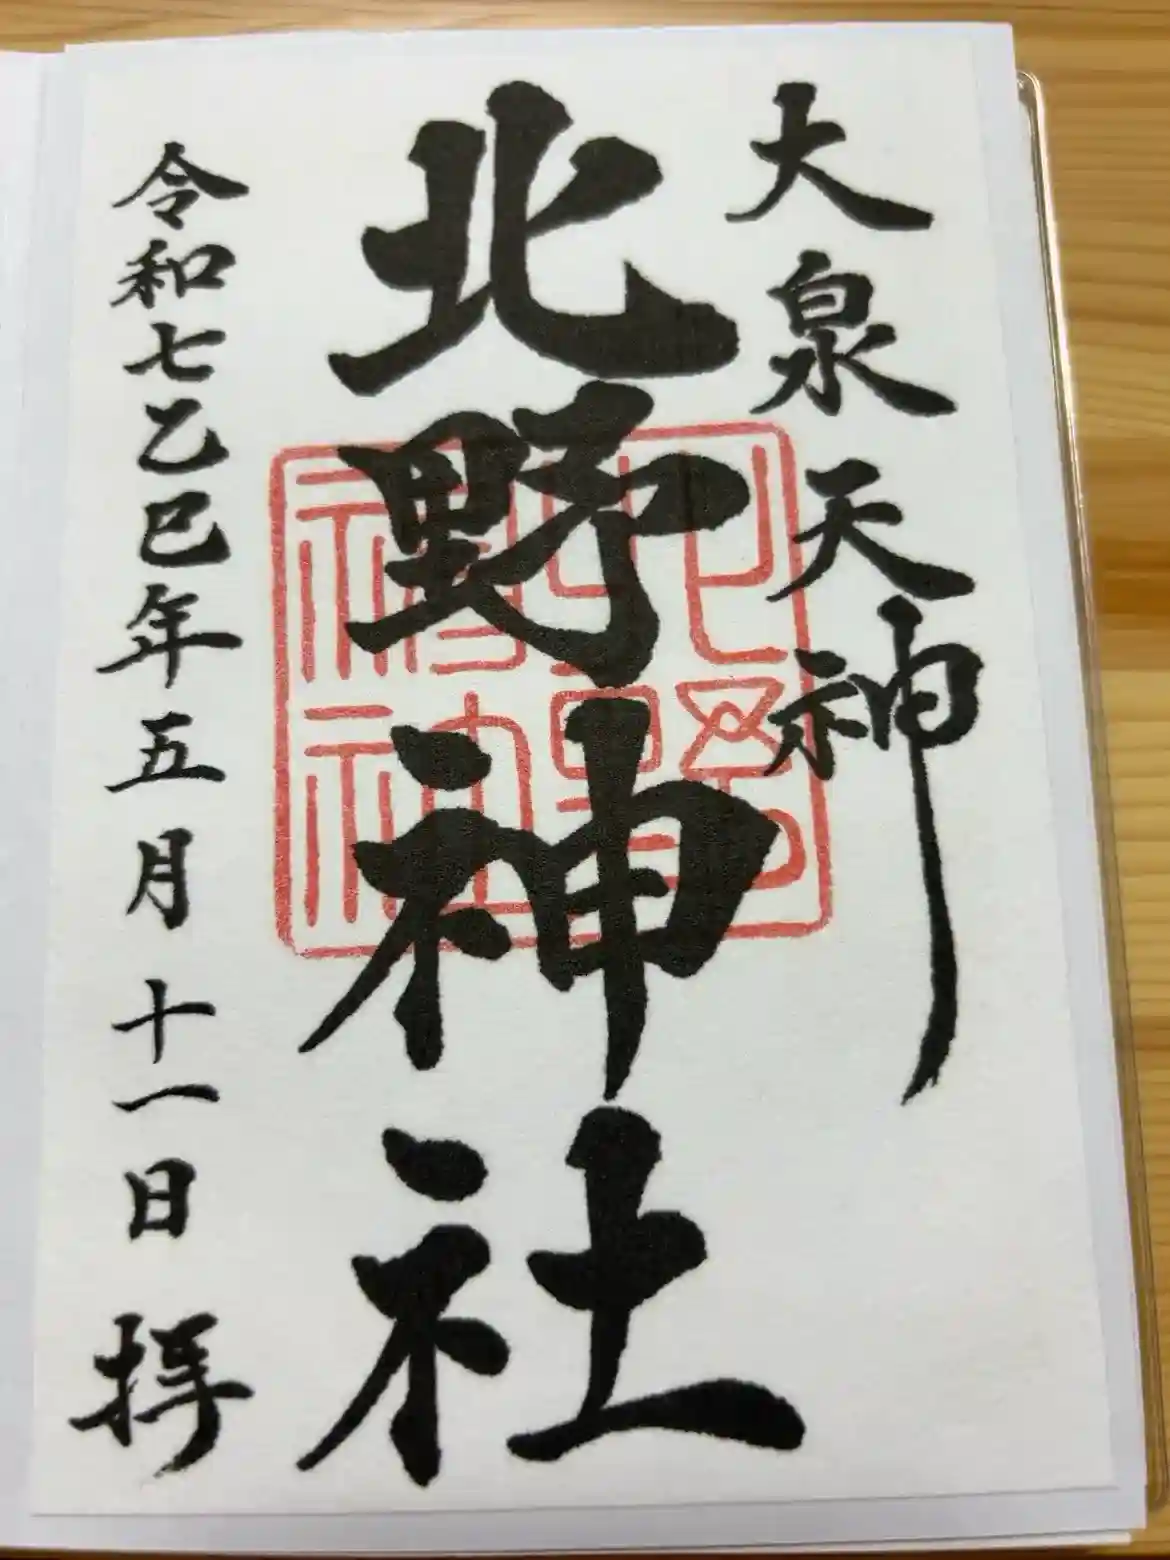 大泉天神
北野神社
北野神社
令和七乙巳年五月十一日 拝